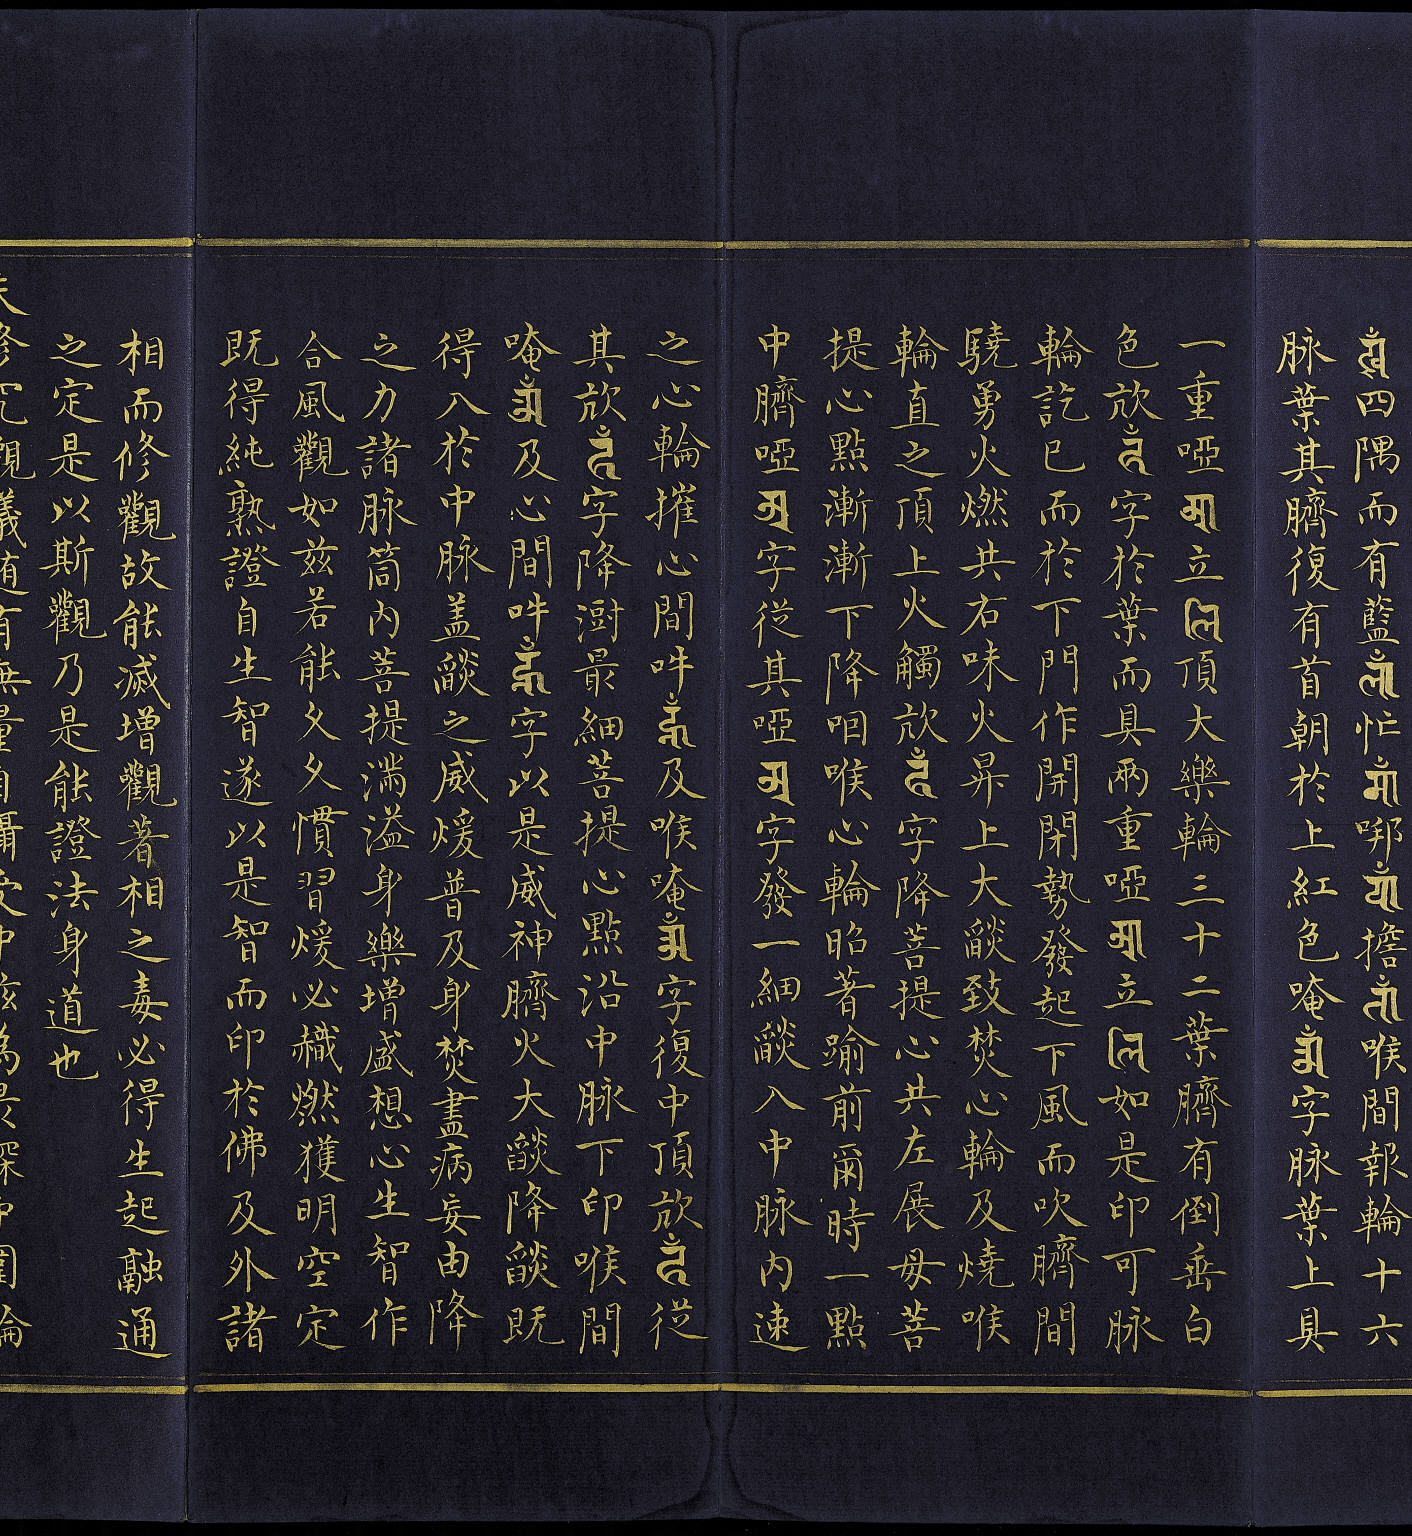 𑖮𑗝𑖽四隅而有藍ལཾ忙མཾ㖿ཡཾ擔ཏཾ喉間報輪十六
脉葉其臍復有首朝於上紅色唵ཨོཾ字脉葉上具
一重啞ཨ立ལི頂大樂輪三十二葉臍有倒垂白
色㰠ཧཾ字於葉而具兩重啞ཨ立ལི如是印可脉
輪訖已而於下門作開閉勢發起下風而吹臍間
驍勇火燃共右味火昇上大燄致焚心輪及燒喉
輪直之頂上火觸㰠ཧཾ字降菩提心共左展毋菩
提心點漸漸下降咽喉心輪昭著踰前爾時一點
中臍啞ཨ字從其啞ཨ字發一細燄入中脉內速
之心輪摧心間吽ཧཱུྃ及喉唵ཨོཾ字復中頂㰠ཧཾ從
其㰠ཧཾ字降澍最細菩提心點沿中脉下印喉間
唵ཨོཾ及心間吽ཧཱུྃ字以是威神臍火大燄降燄既
得入於中脉盖燄之威煖普及身焚盡病妄由降
之力諸脉筒內菩提滿溢身樂增盛想心生智作
合風觀如兹若能久久慣習煖必熾燃獲明空定
既得純熟證自生智遂以是智而印於佛及外諸
相而修觀故能滅增觀著相之毒必得生起融通
之定是以斯觀乃是能證法身道也